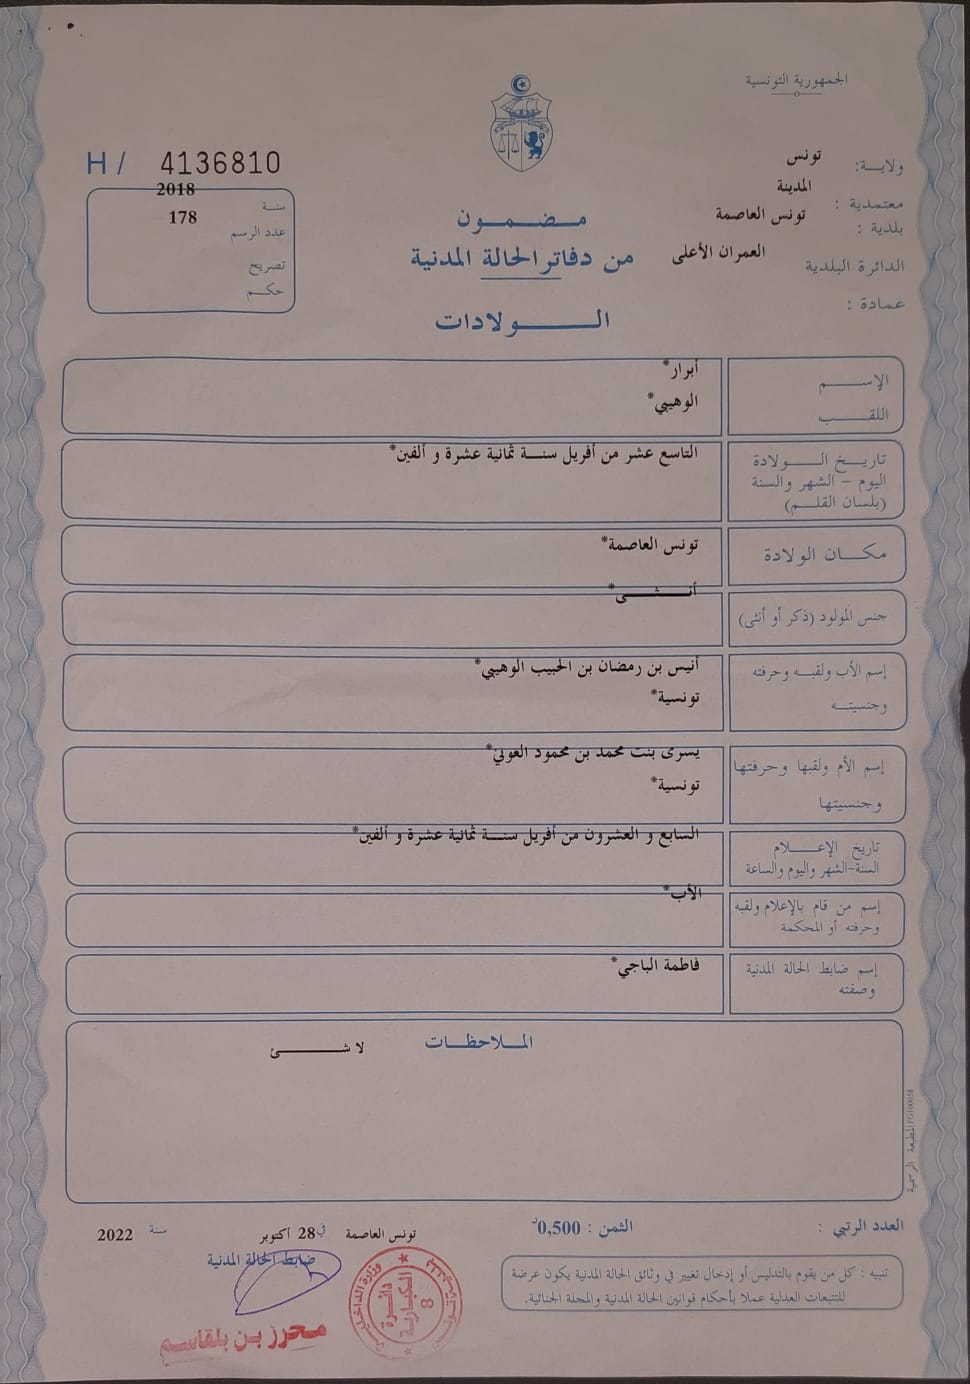 الجمهورية التونسية
ولاية: تونس
معتمدية : المدينة
بلدية : تونس العاصمة
الدائرة البلدية العمران الأعلى
عمادة :
H / 4136810
سنة 2018
عدد الرسم 178
تصريح
حكم
مضمون
من دفاتر الحالة المدنية
الولادات
الإسم أبرار*
اللقب الوهيبي*
تاريخ الولادة التاسع عشر من أفريل سنة ثمانية عشرة و ألفين*
اليوم - الشهر والسنة
(بلسان القلم)
مكان الولادة تونس العاصمة*
جنس المولود (ذكر أو أنثى) أنثى*
إسم الأب ولقبه وحرفته أنيس بن رمضان بن الحبيب الوهيبي*
وجنسيته تونسية*
إسم الأم ولقبها وحرفتها يسرى بنت محمد بن محمود العوني*
وجنسيتها تونسية*
تاريخ الإعلام السابع و العشرون من أفريل سنة ثمانية عشرة و ألفين*
السنة-الشهر واليوم والساعة
إسم من قام بالإعلام ولقبه الأب*
وحرفته أو المحكمة
إسم ضابط الحالة المدنية فاطمة الباجي*
وصفته
الملاحظات
لا شئ
المطبعة الرسمية
العدد الرتبي :
الثمن : 0,500د
تونس العاصمة في 28 أكتوبر سنة 2022
ضابط الحالة المدنية
تنبيه : كل من يقوم بالتدليس أو إدخال تغيير في وثائق الحالة المدنية يكون عرضة
للتتبعات العدلية عملا بأحكام قوانين الحالة المدنية والمجلة الجنائية.
وزارة الداخلية
دائرة
الكبارية
8
محرز بن بلقاسم